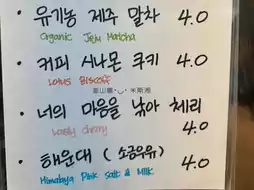 • 유기농 제주 말차 4.0
Organic Jeju Matcha
• 커피 시나몬 쿠키 4.0
Lotus Biscoff
釜山曬·◡·米斯湘
• 너의 마음을 낚아 체리
Lovely cherry 4.0
• 해운대 (소금우유) 4.0
Himalaya Pink Salt & Milk